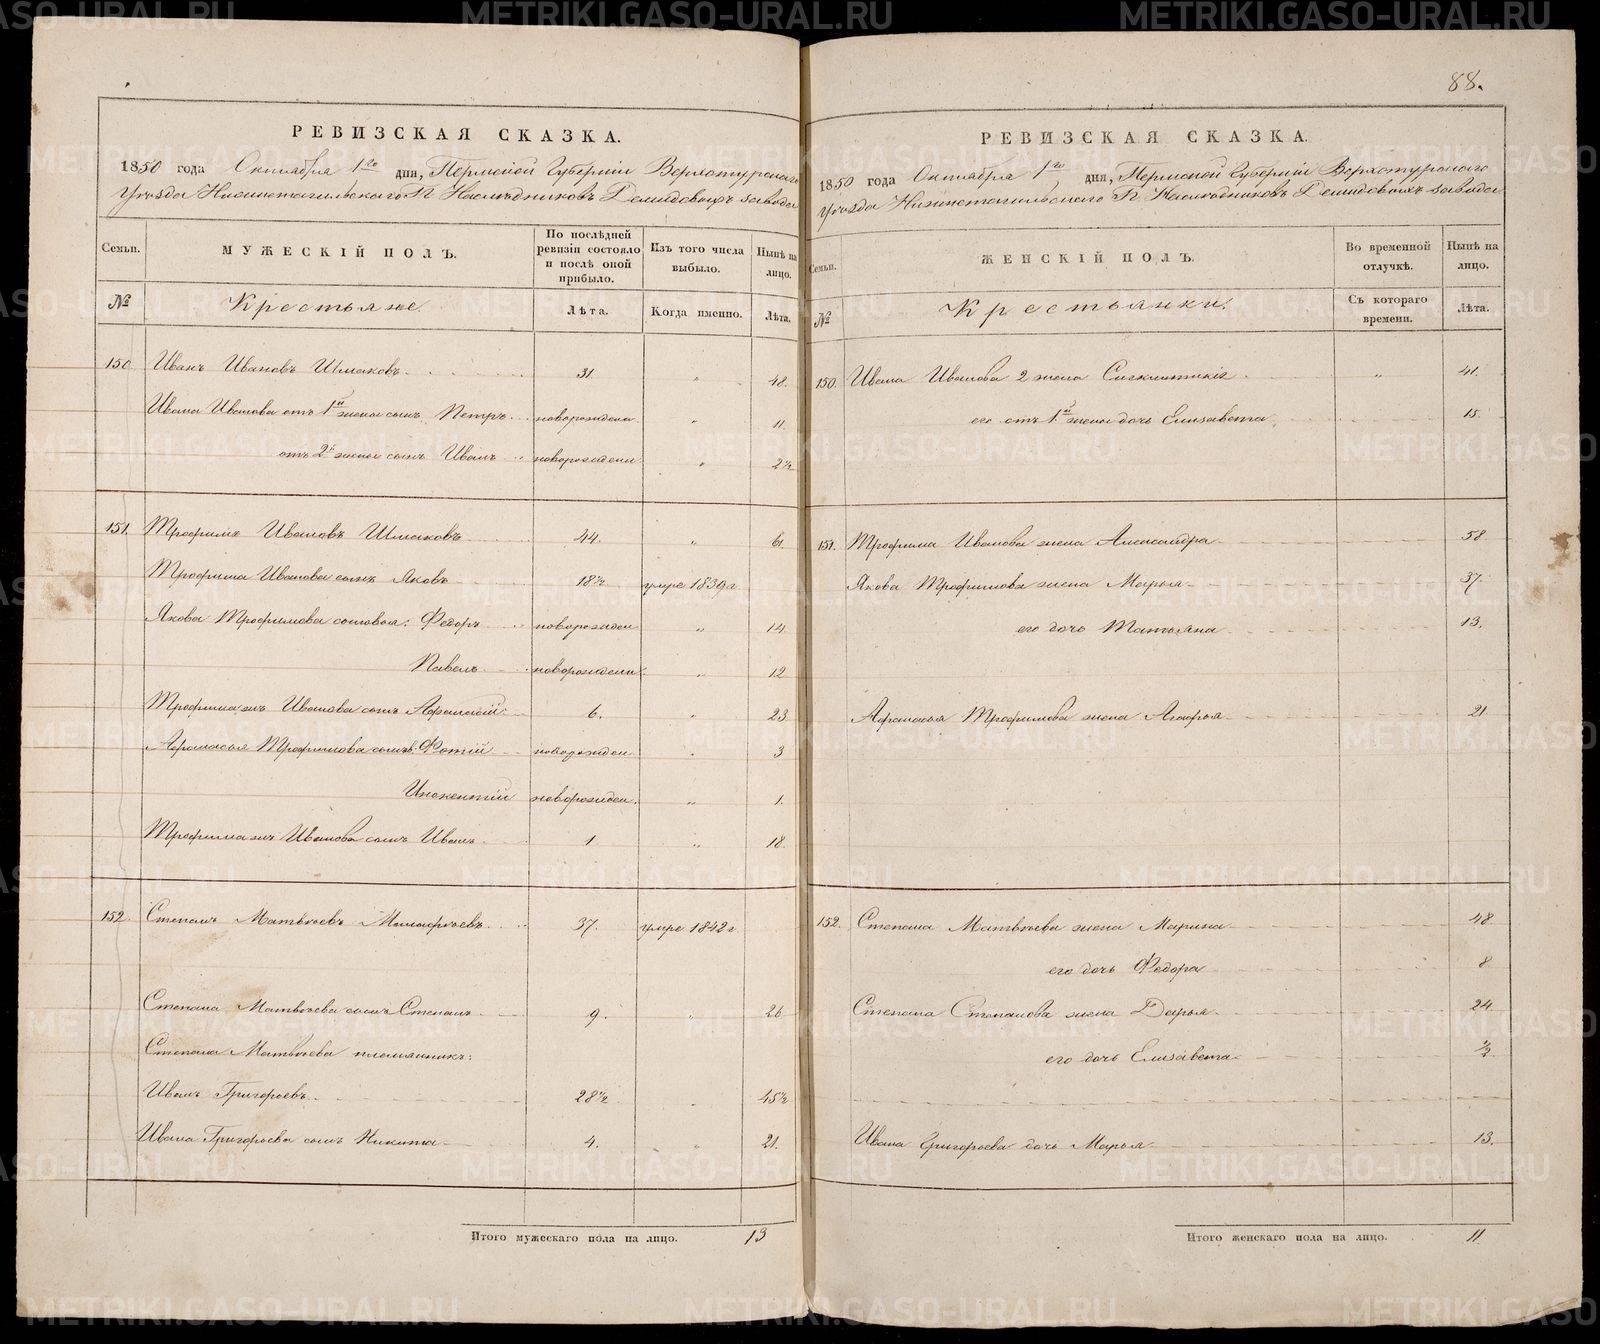 88.
РЕВИЗСКАЯ СКАЗКА.
1850 года Октября 1го дня, Пермской Губернии Верхотурскаго
уезда Нижнетагильскаго Гг. Наследниковъ Демидовыхъ завода
Семьи.
МУЖЕСКІЙ ПОЛЪ.
По последней ревизіи состояло и после оной прибыло.
Изъ того числа выбыло.
Ныне на лицо.
№
Крестьяне
Лета.
Когда именно.
Лета.
150 Иванъ Ивановъ Шмаковъ 31. " 48.
Ивана Иванова отъ 1й жены сынъ Петръ новорожденъ " 11
отъ 2й жены сынъ Иванъ новорожден " 2½
151. Трофимъ Ивановъ Шмаковъ 44. " 61
Трофима Иванова сынъ Яковъ 18½ умре 1839 г
Якова Трофимова сыновья: Федоръ новорожден " 14
Павелъ новорожден " 12
Трофима жъ Иванова сынъ Афанасій 6. " 23
Афанасья Трофимова сынъ: Фотій новорожден " 3
Инокентій новорожден. " 1.
Трофима жъ Иванова сынъ Иванъ 1 " 18.
152. Степанъ Матвеевъ 37. умре 1842 г
Степана Матвеева сынъ Степанъ 9. " 26
Степана Матвеева племянникъ:
Иванъ Григорьевъ 28½ " 45½
Ивана Григорьева сынъ Никита 4. " 21.
Итого мужескаго пола на лицо. 13
РЕВИЗСКАЯ СКАЗКА.
1850 года Октября 1го дня, Пермской Губерніи Верхотурскаго
уезда Нижнетагильскаго Гг. Наследниковъ Демидовыхъ завода
Семьи.
ЖЕНСКІЙ ПОЛЪ.
Во временной отлучкѣ.
Ныпѣ на лицо.
№
Крестьянки.
Съ котораго времени.
Лѣта.
150. Ивана Иванова 2 жена " 41.
его отъ 1й жены дочь Елизавета 15.
151. Трофима Иванова жена Александра 58
Якова Трофимова жена Марья 37.
его дочь Татьяна 13.
Афанасья Трофимова жена Агафья 21
152. Степана Матвеева жена Марина 48
его дочь Федора 8
Степана Степанова жена Дарья 24
его дочь Елизавета ½
Ивана Григорьева дочь Марья 13.
Итого женскаго пола на лицо. 11
METRIKI.GASO-URAL.RU